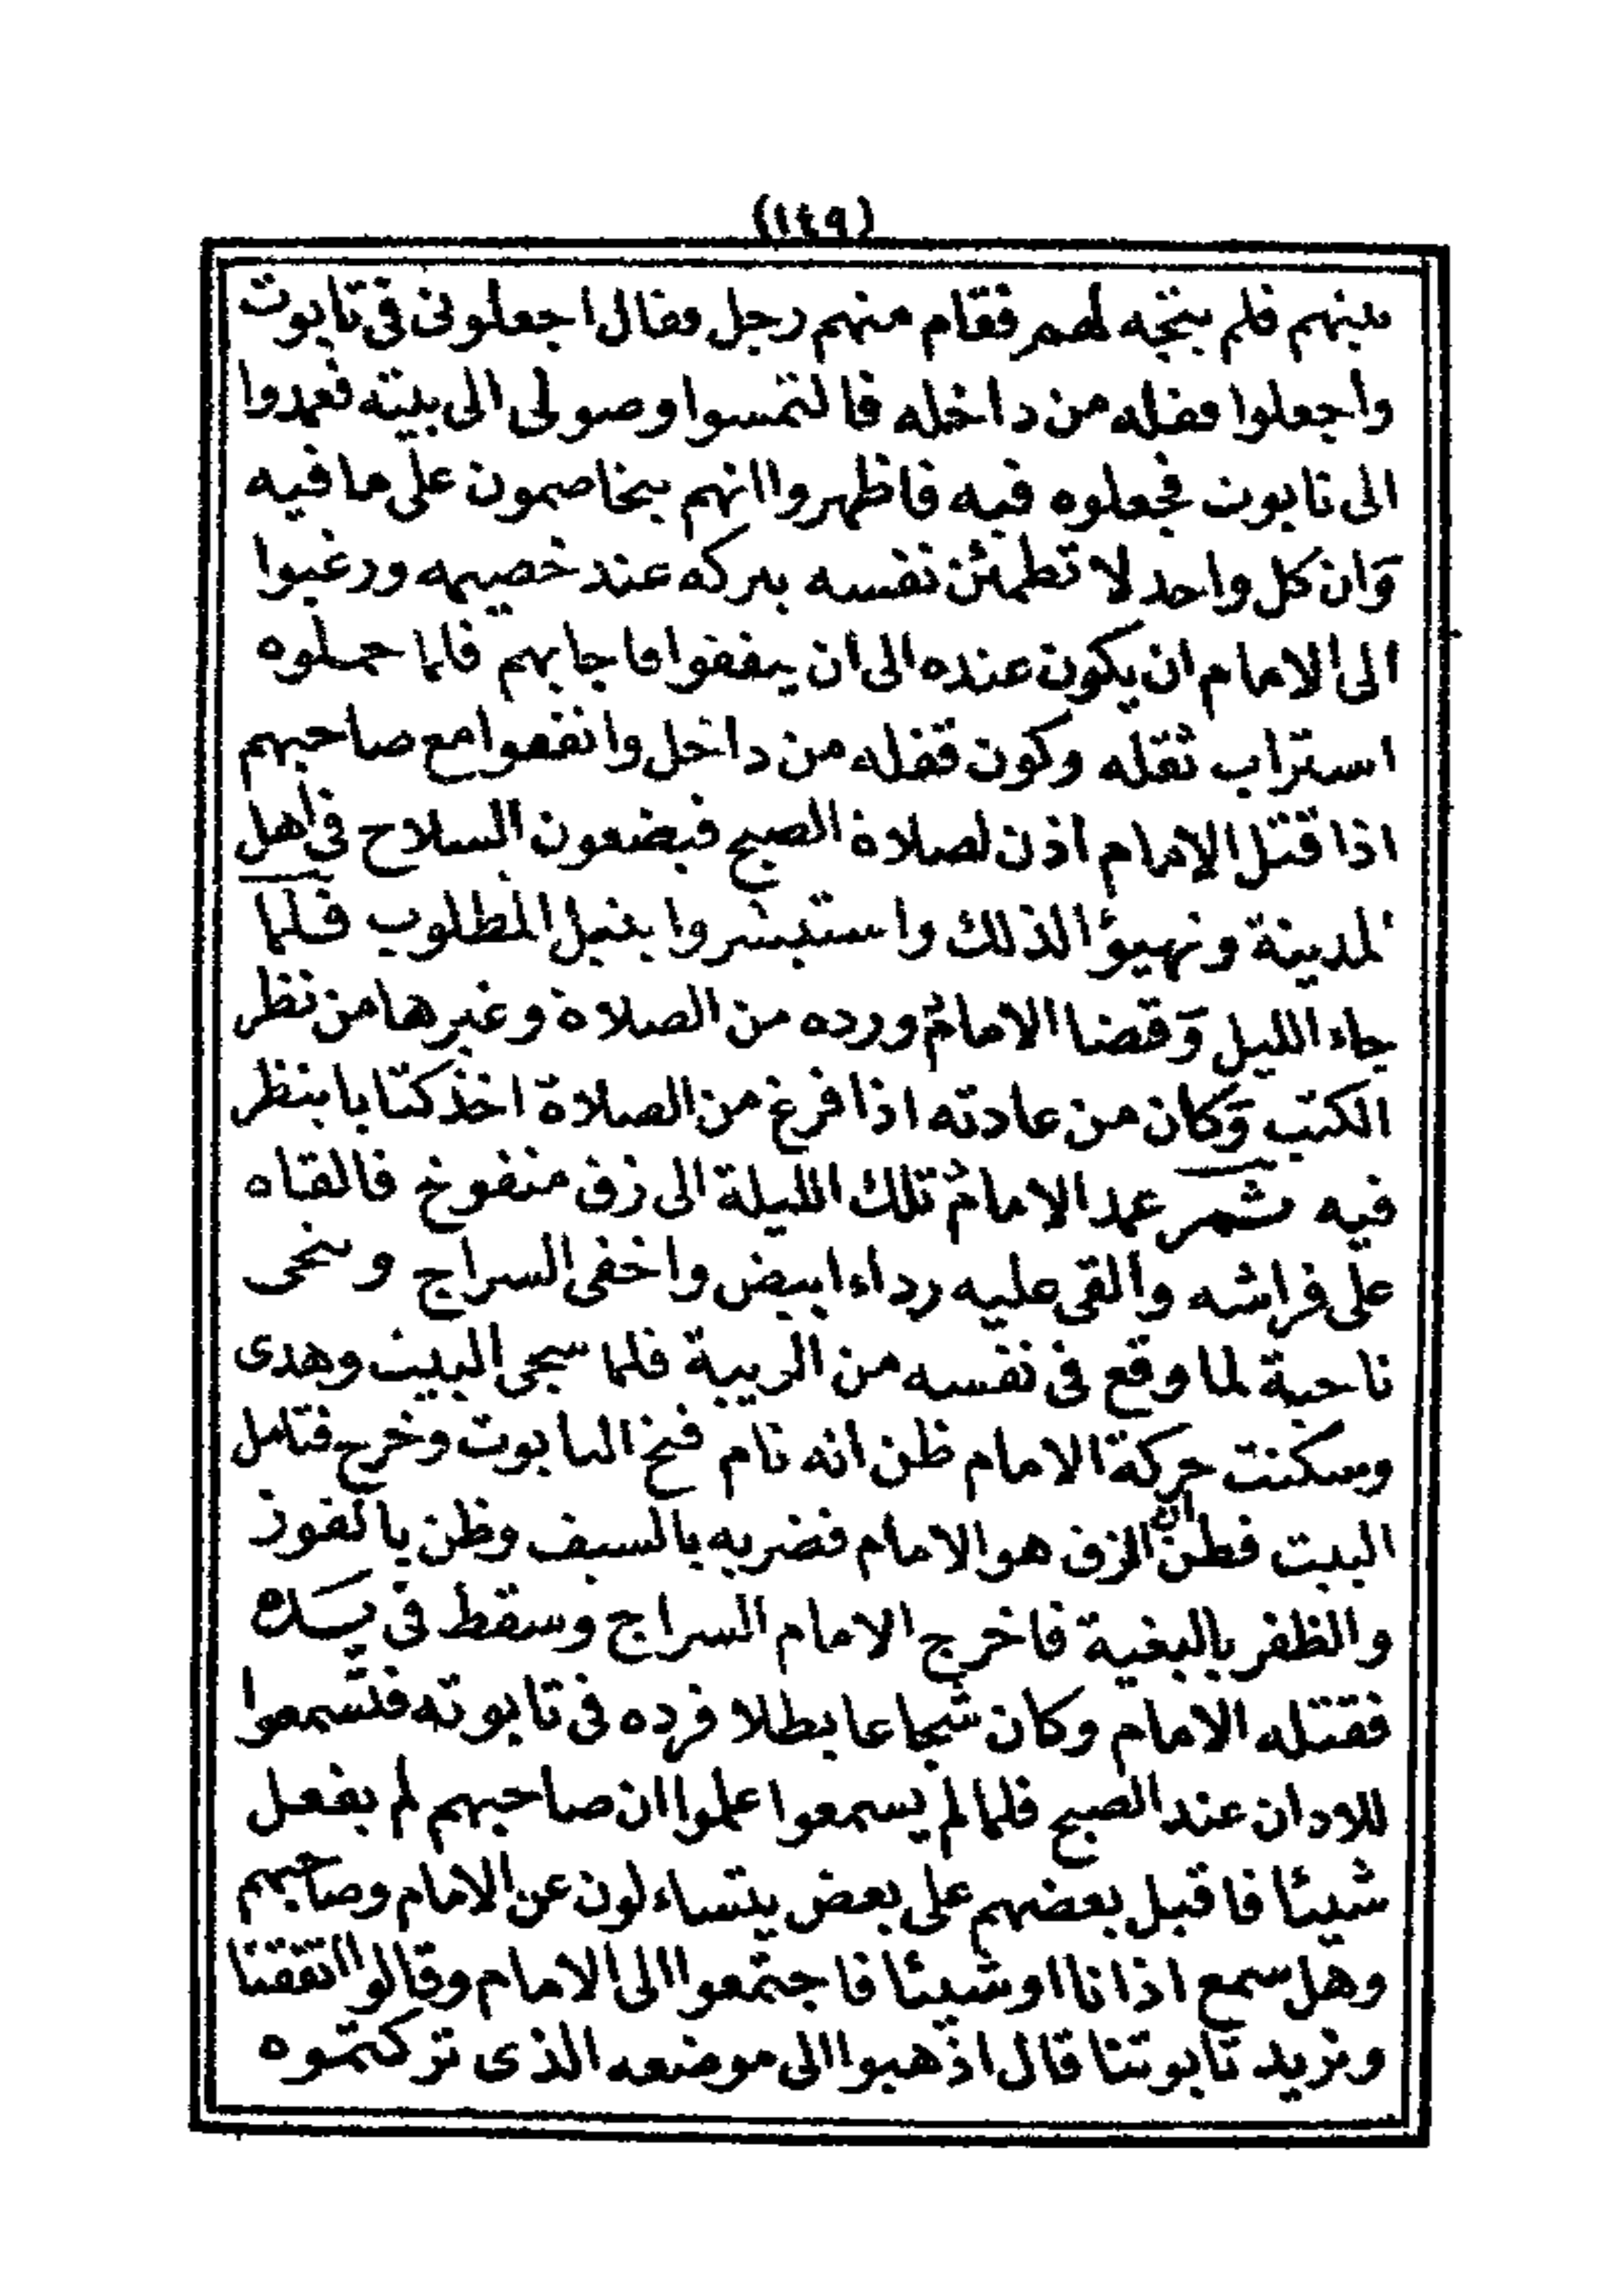 (١٤٩)
بينهم فلم يتجه لهم فقام منهم رجل وقال اجعلونى فى تابوت
واجعلوا قفله من داخله فالتمسوا وصولى الى بيته فعمدوا
الى تابوت فجعلوه فيه فاظهروا انهم يتخاصمون على ما فيه
وان كل واحد لا تطمئن نفسه بتركه عند خصيمه ورغبوا
الى الامام ان يكون عنده الى ان يتفقوا فاجابهم فلما حملوه
استراب ثقله وكون قفله من داخل واتفقوا مع صاحبهم
اذا قتل الامام اذن لصلاة الصبح فيضعون السلاح فى اهل
المدينة وتهيؤا لذلك واستبشروا بنيل المطلوب فلما
جاء الليل وقضا الامام ورده من الصلاة وغيرها من نظر
الكتب وكان من عادته اذا فرغ من الصلاة اخذ كتابا ينظر
فيه ثم عمد الامام تلك الليلة الى زق منفوخ فالقاه
على فراشه والقى عليه رداء ابيض واخفى السراج وتنحى
ناحية لما وقع فى نفسه من الريبة فلما سجى البيت وهدى
وسكنت حركة الامام ظن انه نام فتح التابوت وخرج فتامل
البيت فظن ان الزق هو الامام فضربه بالسيف وظن بالفوز
والظفر بالبغية فاخرج الامام السراج وسقط فى يده
فقتله الامام وكان شجاعا بطلا فرده فى تابوته فتسمعوا
للاذان عند الصبح فلما لم يسمعوا علموا ان صاحبهم لم يفعل
شيئا فاقبل بعضهم على بعض يتساءلون عن الامام وصاحبهم
وهل سمع اذانا او شيئا فاجتمعوا الى الامام وقالوا اتفقنا
ونريد تابوتنا قال اذهبوا الى موضعه الذى تركتموه